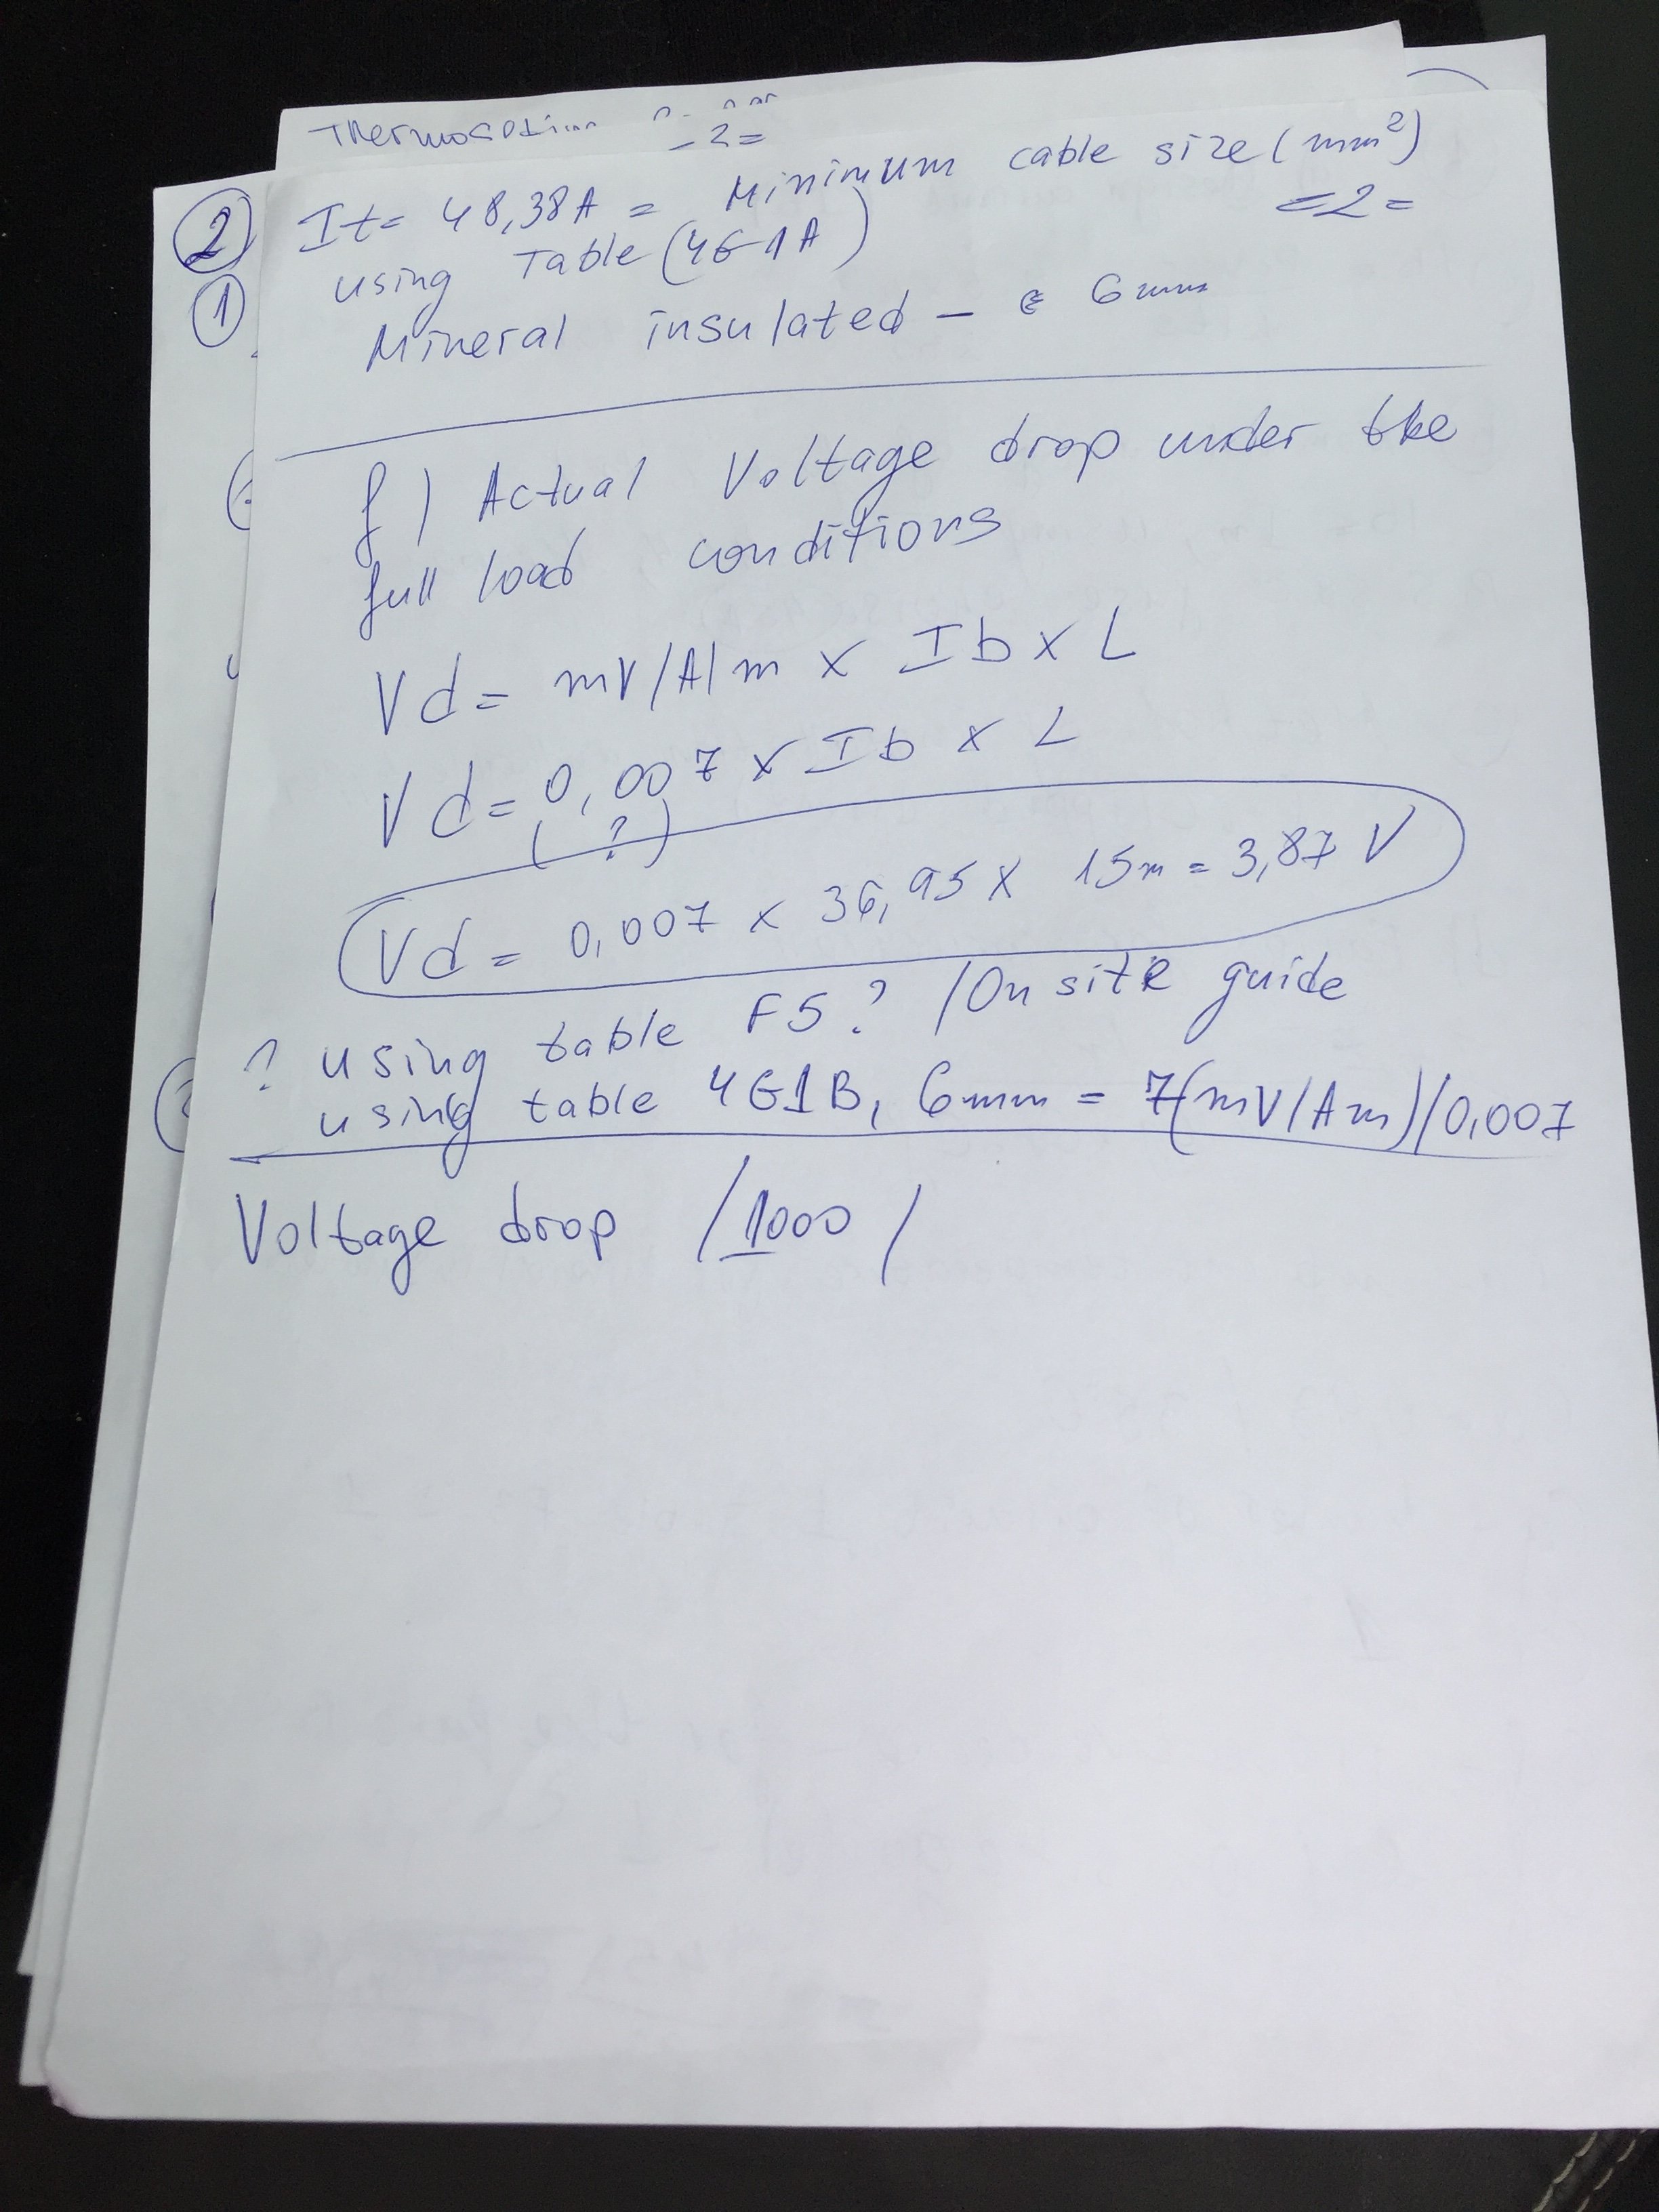 -2=
② It= 48,38A = Minimum cable size (mm²)
=2=
① using Table (4G1A)
Mineral insulated - 6mm
f) Actual Voltage drop under the
full load conditions
Vd = mV/A/m x Ib x L
Vd = 0,007 x Ib x L
(?)
Vd = 0,007 x 36,95 x 15m = 3,87 V
? using table F5? /On site guide
using table 4G1B, 6mm = 7(mV/Am)/0,007
Voltage drop /1000/